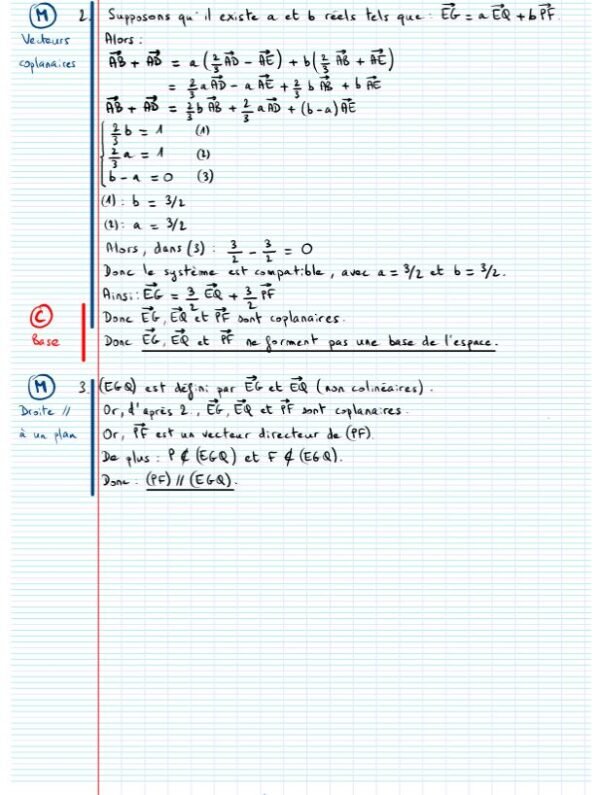 (M) 2. Supposons qu'il existe a et b réels tels que : EG⃗ = a EQ⃗ + b PF⃗.
Vecteurs Alors :
coplanaires AB⃗ + AD⃗ = a(2/3 AD⃗ - AE⃗) + b(2/3 AB⃗ + AE⃗)
= 2/3 a AD⃗ - a AE⃗ + 2/3 b AB⃗ + b AE⃗
AB⃗ + AD⃗ = 2/3 b AB⃗ + 2/3 a AD⃗ + (b-a) AE⃗
{ 2/3 b = 1 (1)
2/3 a = 1 (2)
b - a = 0 (3)
(1) : b = 3/2
(2) : a = 3/2
Alors, dans (3) : 3/2 - 3/2 = 0
Donc le système est compatible, avec a = 3/2 et b = 3/2.
Ainsi : EG⃗ = 3/2 EQ⃗ + 3/2 PF⃗
(C) Donc EG⃗, EQ⃗ et PF⃗ sont coplanaires.
Base Donc EG⃗, EQ⃗ et PF⃗ ne forment pas une base de l'espace.
(M) 3. (EGQ) est défini par EG⃗ et EQ⃗ (non colinéaires).
Droite // Or, d'après 2., EG⃗, EQ⃗ et PF⃗ sont coplanaires.
à un plan Or, PF⃗ est un vecteur directeur de (PF).
De plus : P ∉ (EGQ) et F ∉ (EGQ).
Donc : (PF) // (EGQ).